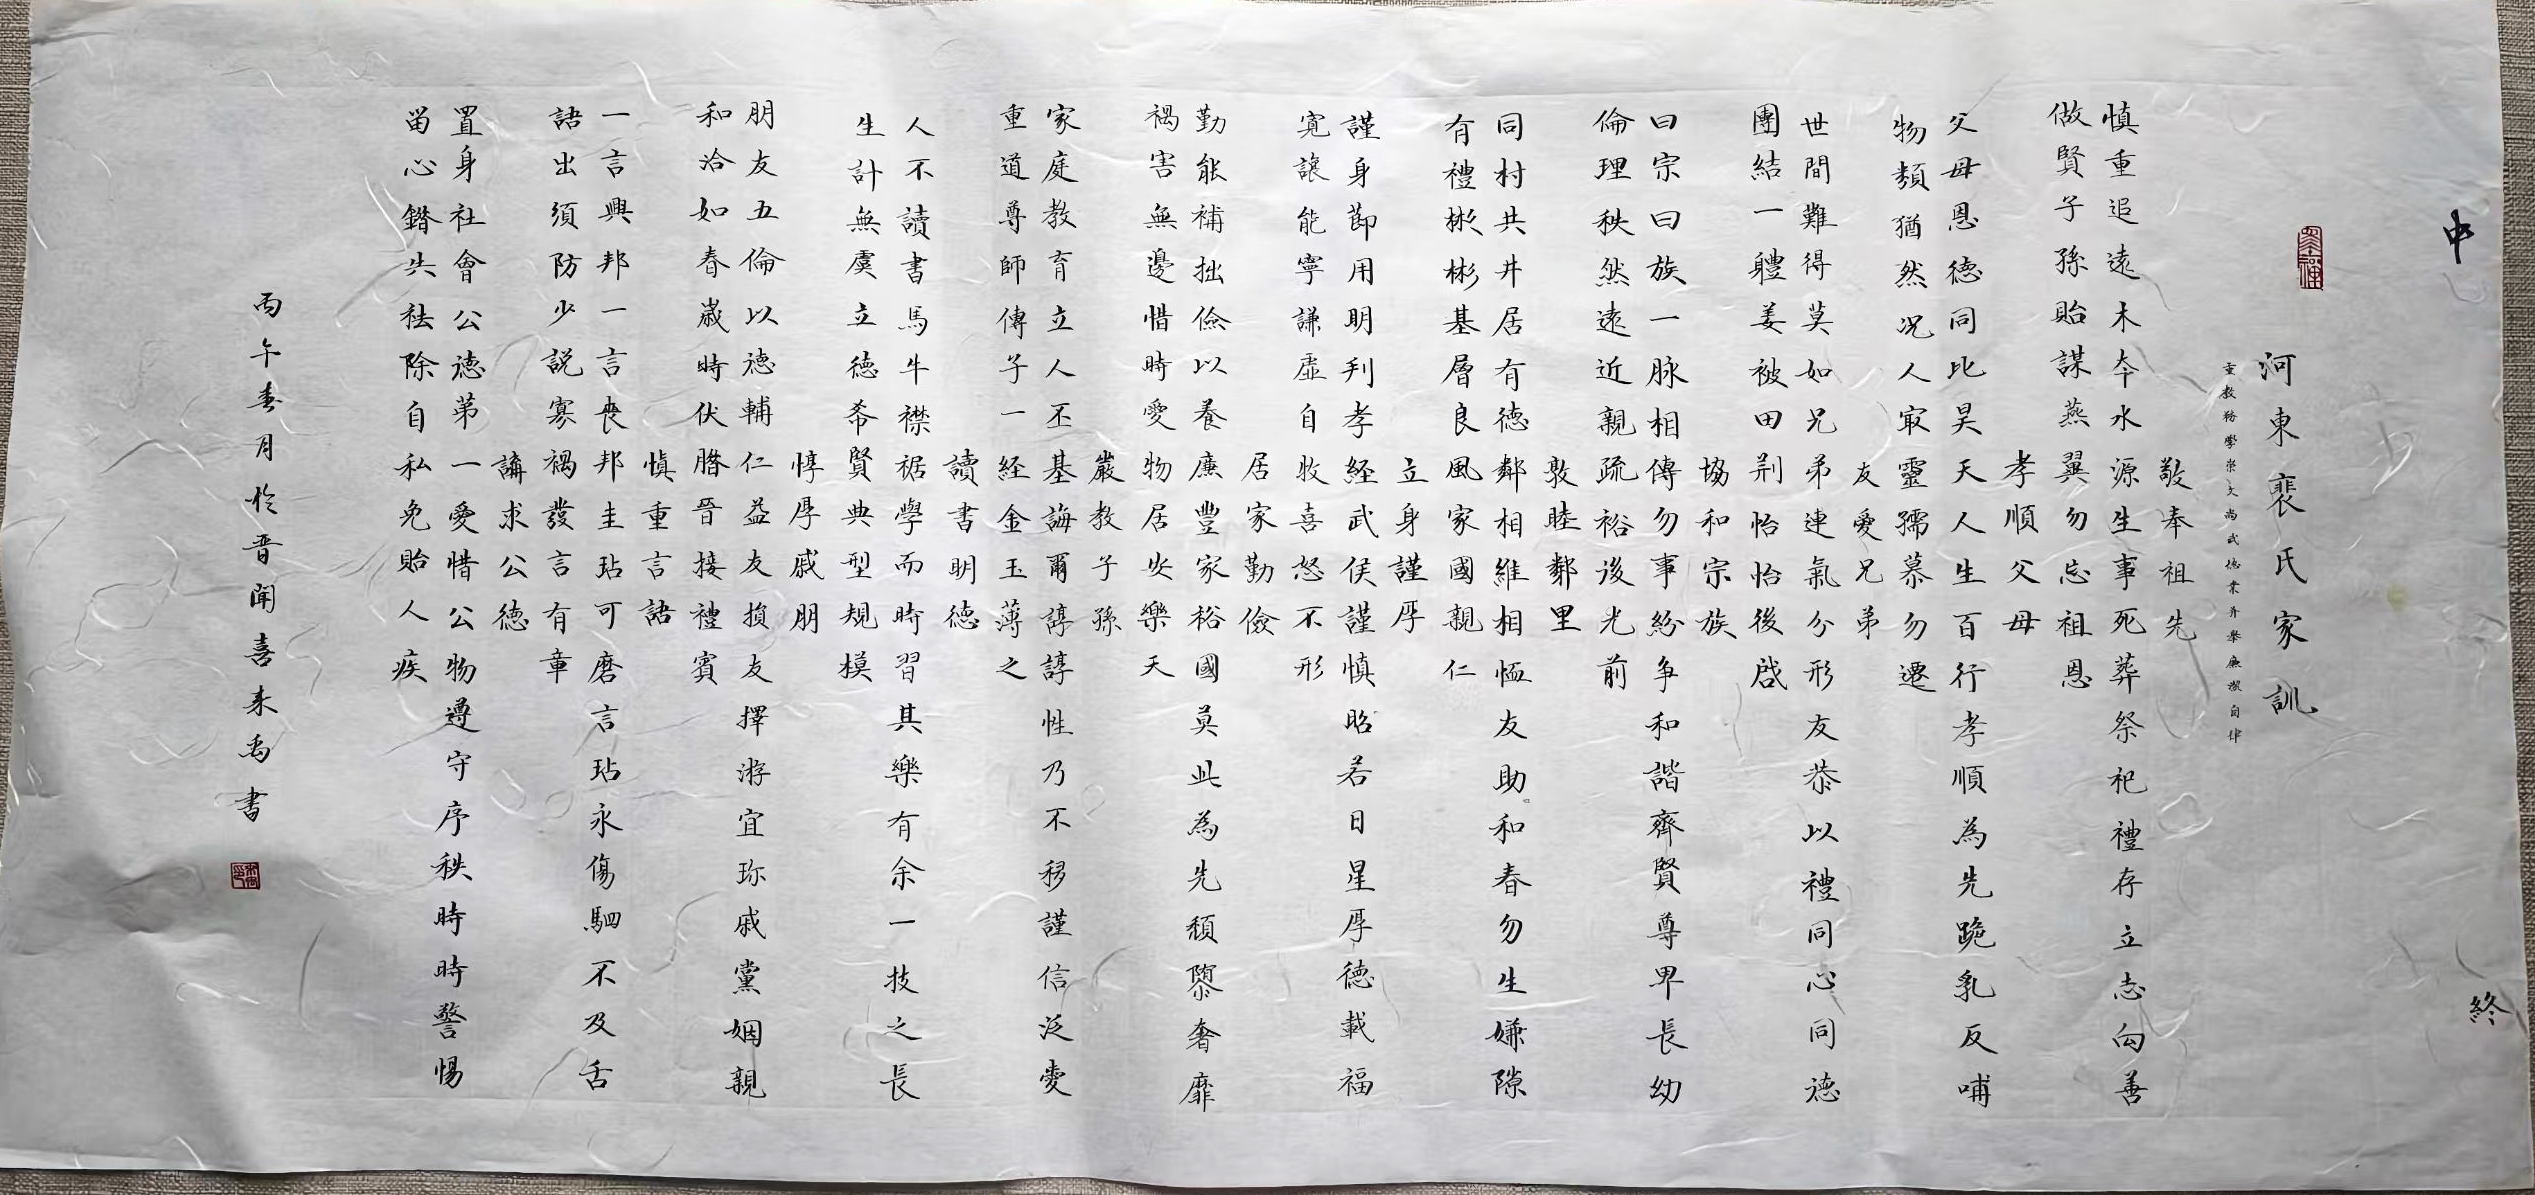 申
終
河東裴氏家訓
重教務學崇文尚武德業并舉廉潔自律
敬奉祖先
慎重追遠木本水源生事死葬祭祀禮存立志向善
做賢子孫貽謀燕翼勿忘祖恩
孝順父母
父母恩德同比昊天人生百行孝順為先跪乳反哺
物類猶然况人最靈孺慕勿遷
友愛兄弟
世間難得莫如兄弟連氣分形友恭以禮同心同德
團結一體姜被田荆怡怡後啓
協和宗族
曰宗曰族一脉相傳勿事紛争和諧齊賢尊卑長幼
倫理秩然遠近親疏裕後光前
敦睦鄰里
同村共井居有德鄰相維相恤友助和春勿生嫌隙
有禮彬彬基層良風家國親仁
立身謹厚
謹身節用明刋孝経武侯謹慎昭若日星厚德載福
寬讓能寧謙虛自牧喜怒不形
居家勤儉
勤能補拙儉以養廉豐家裕國莫此為先頹隳奢靡
禍害無邊惜時愛物居安樂天
嚴教子孫
家庭教育立人丕基誨爾諄諄性乃不移謹信泛愛
重道尊師傳子一経金玉薄之
讀書明德
人不讀書馬牛襟裾學而時習其樂有余一技之長
生計無虞立德希賢典型規模
惇厚戚朋
朋友五倫以德輔仁益友損友擇游宜珎戚黨姻親
和洽如春歲時伏腊晉接禮賓
慎重言語
一言興邦一言喪邦圭玷可磨言玷永傷駟不及舌
語出須防少説寡禍發言有章
講求公德
置身社會公德第一愛惜公物遵守序秩時時警惕
留心錯失祛除自私免貽人疾
丙午春月於晋聞喜来禹書